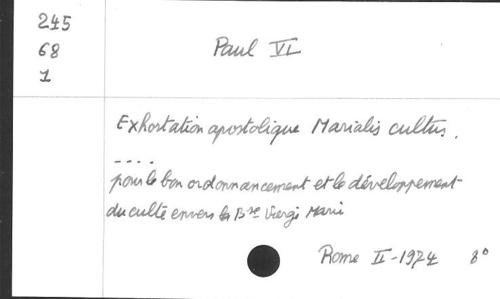 245
68
1
Paul VI
Exhortation apostolique Marialis cultus.
....
pour le bon ordonnancement et le développement
du culte envers la Bse Vierge Marie
Rome II-1974 8°